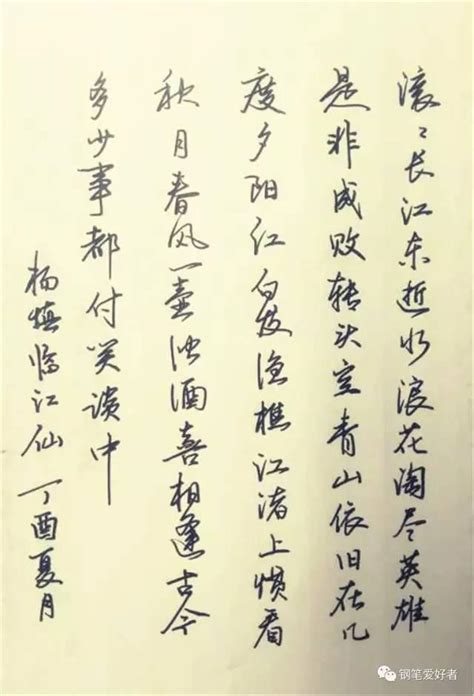 滚〻长江东逝水浪花淘尽英雄
是非成败转头空青山依旧在几
度夕阳红白发渔樵江渚上惯看
秋月春风一壶浊酒喜相逢古今
多少事都付笑谈中
杨慎临江仙 丁酉夏月
钢笔爱好者